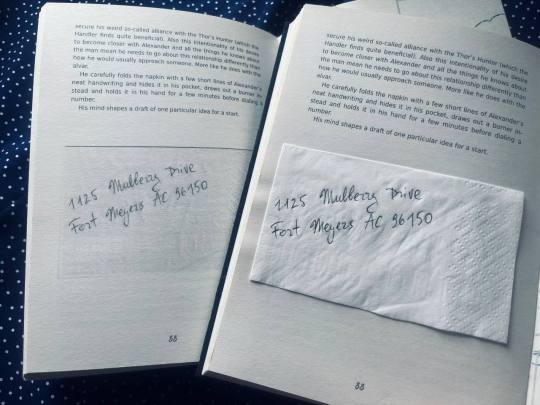 secure his weird so-called alliance with the Thor's Hunter (which the
Handler finds quite beneficial). Also this intentionality of his desire
to become closer with Alexander and all the things he knows about
the man mean he needs to go about this relationship differently than
how he would usually approach someone. More like he does with the
alvar.
He carefully folds the napkin with a few short lines of Alexander's
neat handwriting and hides it in his pocket, draws out a burner in-
stead and holds it in his hand for a few minutes before dialing a
number.
His mind shapes a draft of one particular idea for a start.
1125 Mulberry Drive
Fort Meyers AC 96150
88
secure his weird so-called alliance with the Thor's Hunter (which the
Handler finds quite beneficial). Also this intentionality of his desire
to become closer with Alexander and all the things he knows about
the man mean he needs to go about this relationship differently than
how he would usually approach someone. More like he does with the
alvar.
He carefully folds the napkin with a few short lines of Alexander's
neat handwriting and hides it in his pocket, draws out a burner in-
stead and holds it in his hand for a few minutes before dialing a
number.
His mind shapes a draft of one particular idea for a start.
1125 Mulberry Drive
Fort Meyers AC 96150
88